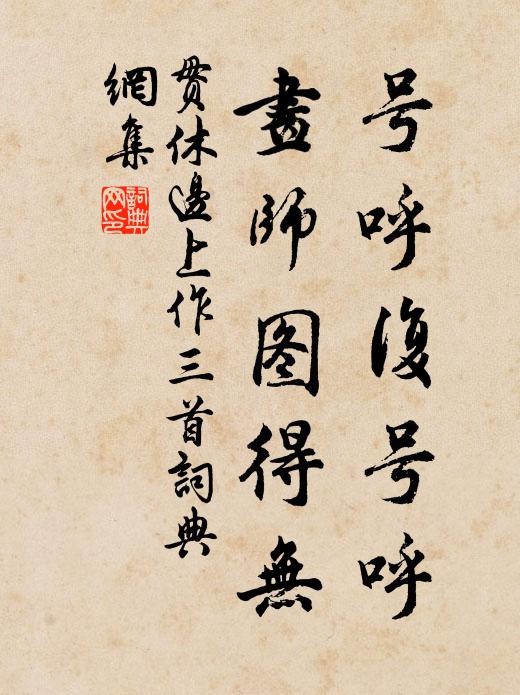 号呼復号呼
畫師图得無
贯休邊上作三首詞典
網集
詞典網印